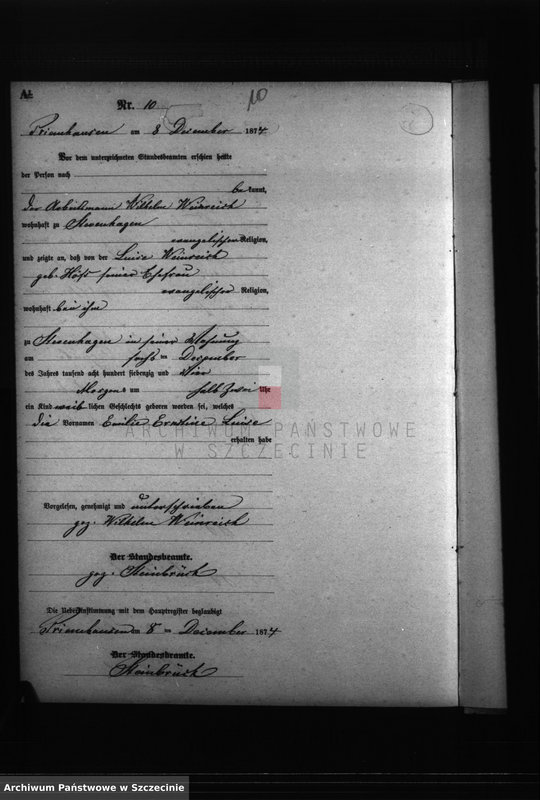 A.
Nr. 10
10
Priemhausen am 8 Dezember 1874
Vor dem unterzeichneten Standesbeamten erschien heute
der Person nach
be kannt,
der Arbeitsmann Wilhelm Weinreich
wohnhaft zu Stevenhagen
evangelischen Religion,
und zeigte an, daß von der Luise Weinreich
geb. Höft seiner Ehefrau
evangelischer Religion,
wohnhaft bei ihm
zu Stevenhagen in seiner Wohnung
am sechs ten Dezember
des Jahres tausend acht hundert siebenzig und vier
Morgens um halb zwei Uhr
ein Kind weib lichen Geschlechts geboren worden sei, welches
die Vornamen Emilie Ernstine Luise
erhalten habe
Vorgelesen, genehmigt und unterschrieben
gez. Wilhelm Weinreich
Der Standesbeamte.
gez. Steinbrück
Die Uebereinstimmung mit dem Hauptregister beglaubigt
Priemhausen am 8 ten Dezember 1874
Der Standesbeamte.
Steinbrück
ARCHIWUM PAŃSTWOWE
W SZCZECINIE
Archiwum Państwowe w Szczecinie